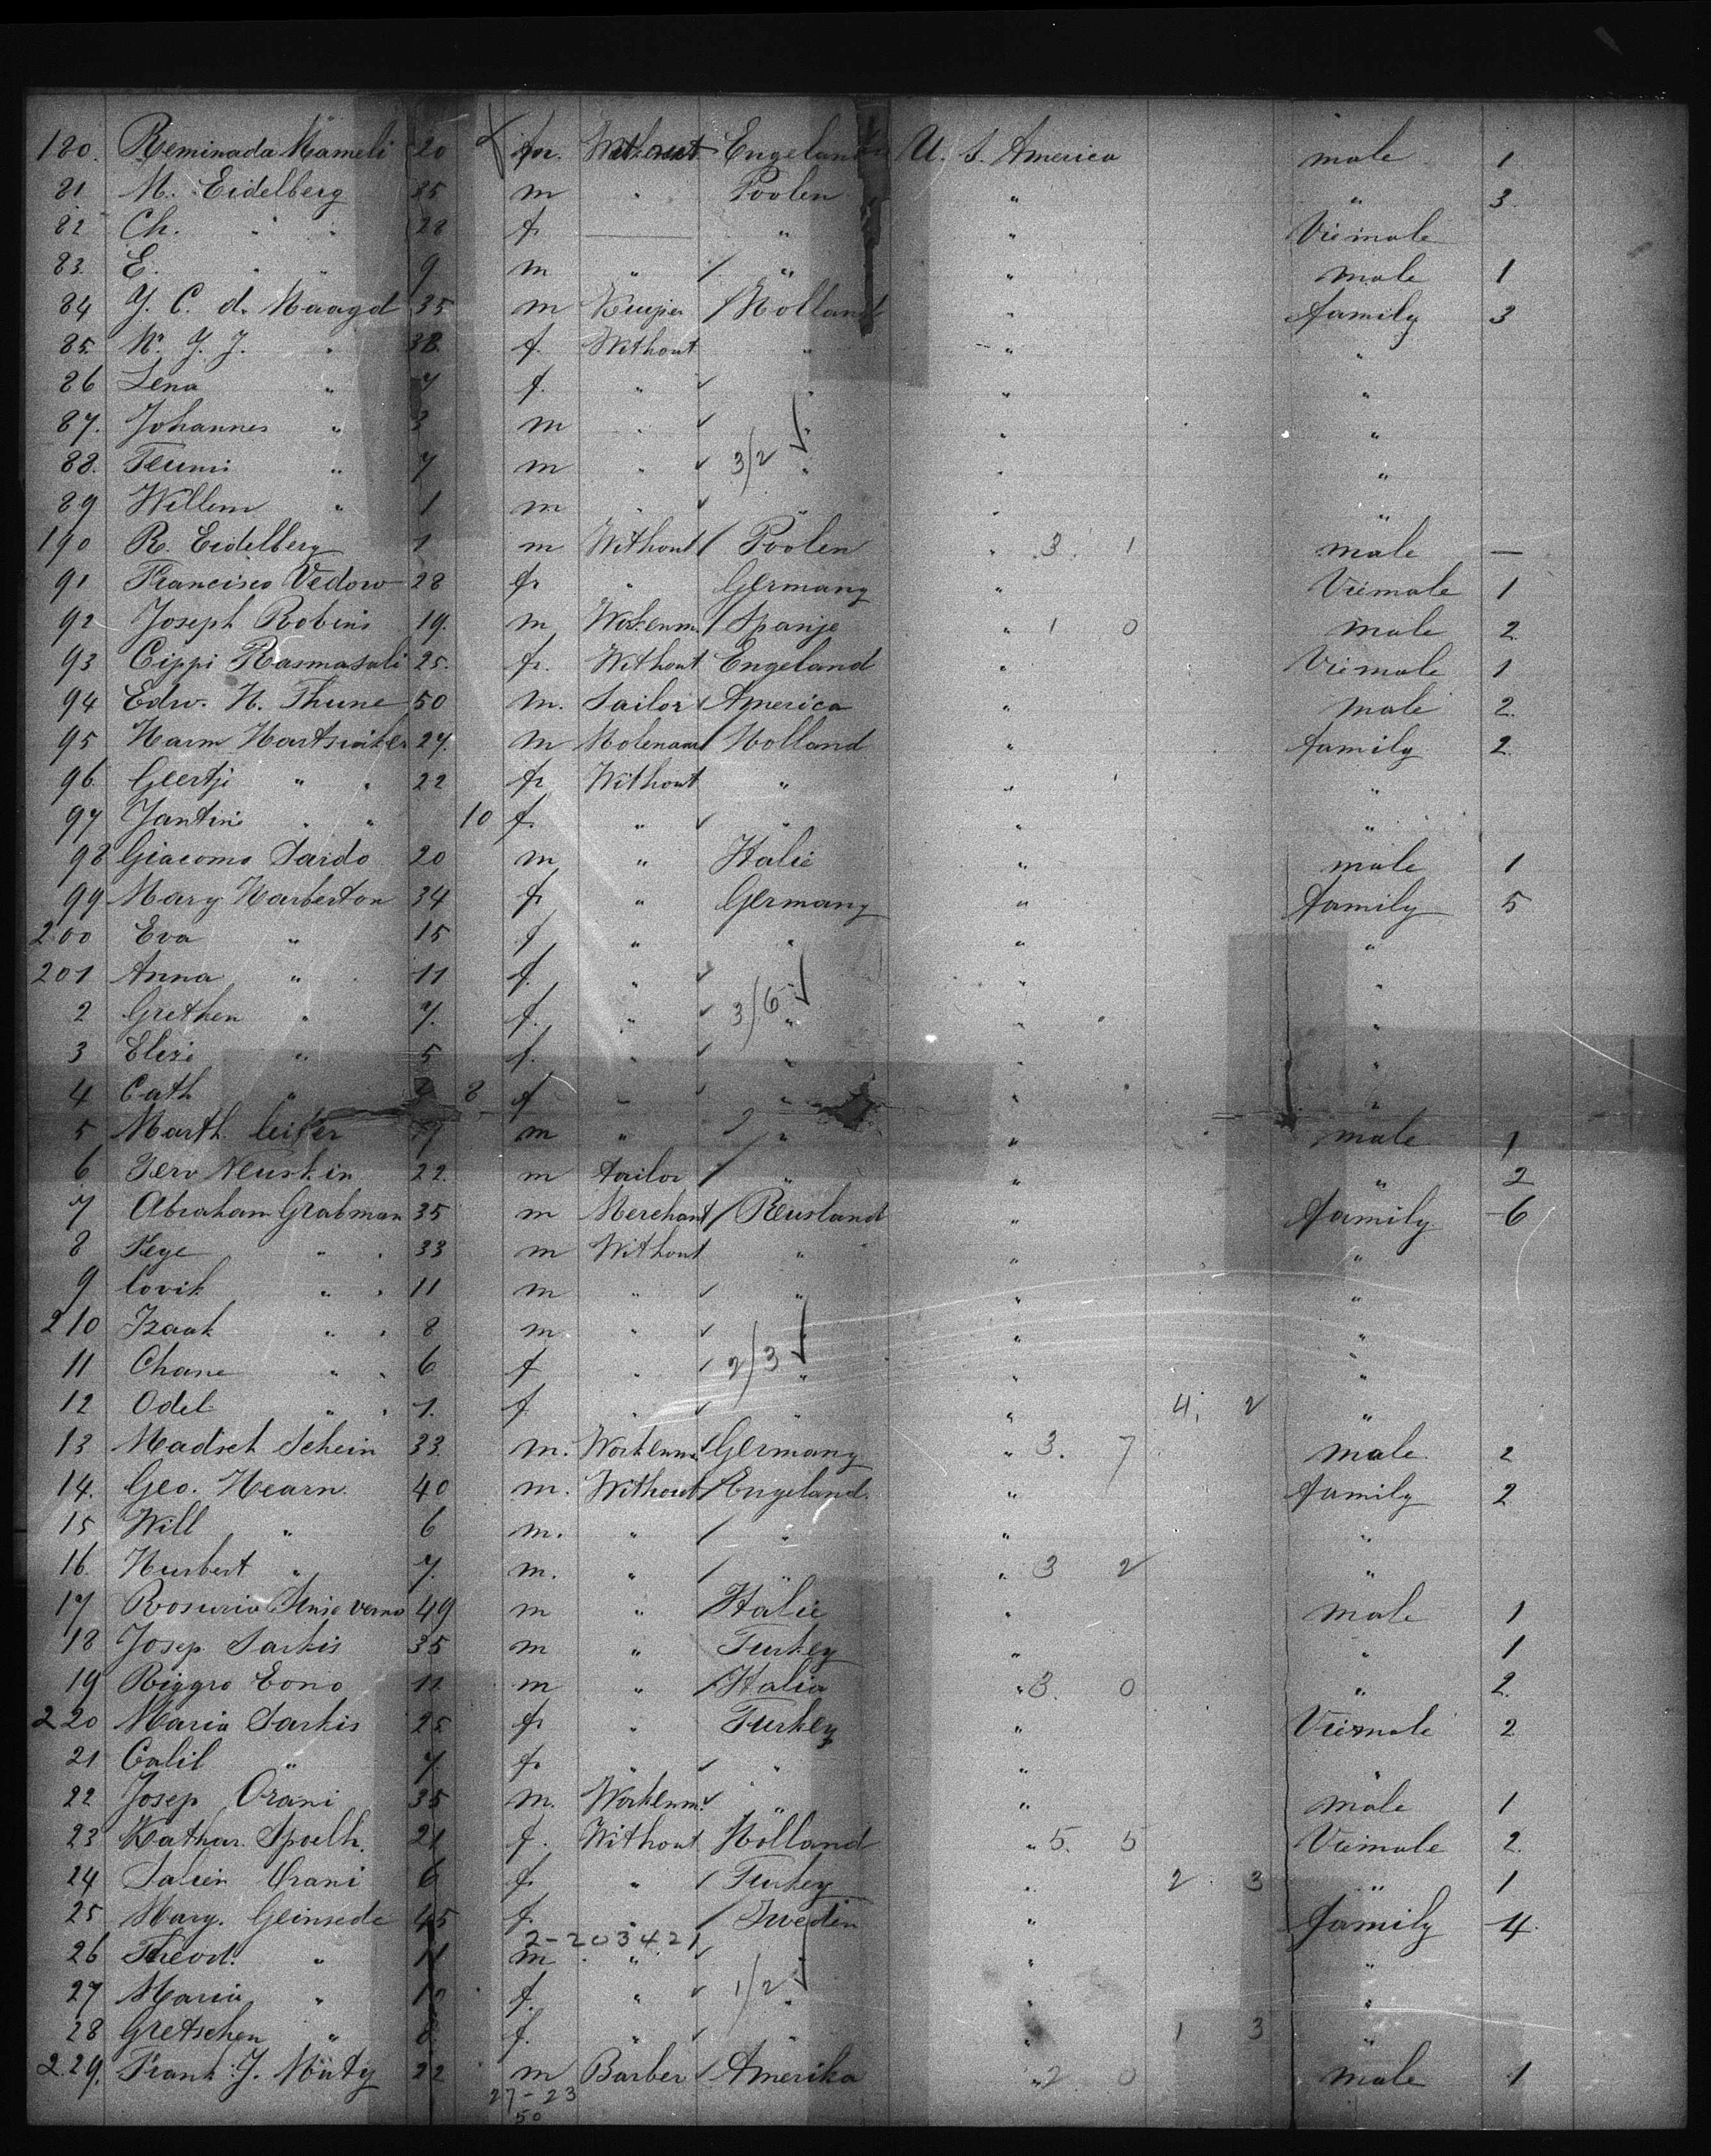 180. Reminada Mameli 20 fr. Without Engeland U. S. America male 1
81 M. Eidelberg 35 m " Poolen " " 3
82 Ch. " " 28 fr — " " Viemale
83. E. " " 9 m " / " " male 1
84 J. C. d. Maagd 35 m Kuiper / Holland " family 3
85. N. J. J. " 38. f. Without " " "
86 Lena " 7 f. " ✓ " " "
87. Johannes " 3 m " ✓ " " "
88. Teunis " 7 m " ✓ 3/2 " " "
89 Willem " 1 m " ✓ " " "
190 R. Eidelberg 1 m Without / Poolen " 3. 1 male —
91 Francisco Vedow 28 fr " Germany " Viemale 1
92 Joseph Robins 19. m Workenm. / Spanje " 1 0 male 2
93 Cippi Rasmasali 25. fr. Without Engeland " Viemale 1
94 Edw. H. Thune 50 m. Sailor ✓ America " male 2.
95 Harm Hartsuiker 27. m Molenaar / Holland " family 2.
96. Geertje " " 22 fr Without " " "
97 Jantine " " 10 f. " ✓ " " "
98 Giacomo Sardo 20 m " Italie " male 1
99 Mary Harberton 34 fr " Germany " family 5
200 Eva " 15 f " " " "
201 Anna " 11 f. " ✓ " "
2 Grethen " 7. f. " ✓ 3/6 " " "
3 Elise " 5 f. " ✓ " " "
4 Cath " 8 f " ✓ " " "
5 Marth. m " / " " male 1
6 22. m tailor / " " " 2
7 Abraham Grabman 35 m Merchant / Reusland " family 6
8 Feye " " 33 m Without " " "
9 lovik " " 11 m " ✓ " " "
210 Izaak " " 8 m " ✓ " "
11 Chane " " 6 f " ✓ 2/3 " " "
12 Odel " " 1. f " ✓ " " 4. 2 "
13 Madsch Schein 33. m. Workenm. / Germany " 3. 7 male. 2
14. Geo. Hearn. 40 m. Without / Engeland. " family 2
15 Will " 6 m. " / " " "
16. Hurbert " 7. m. " / " " 3 2 "
17 Rosurio 49 m " / Italie " male 1
18 Josep Sarkis 35 m " Turkey " " 1
19 Riggro Eono 11 m " / Italia " 3. 0 " 2.
220 Maria Sarkis 25 fr " Turkey " Viemale 2
21 Calil " 7 fr " ✓ " " "
22 Josep Orani 35 m. Workenm. ✓ " " male 1
23 Kathar. Spoelh. 21 f. Without Holland " 5. 5 Viemale 2.
24 Salien Orani 6 f. " / Turkey " 2. 3 " 1
25 Marg. Geinsede 45 f. " / Sweden " family 4
2-203421
26 Theod. " 11 m " ✓ " "
27 Maria " 10 f. " ✓ 1/2 " " "
28 Gretschen " f. " ✓ " " 1 3 "
229. Frank J. Müty 22 m Barber ✓ Amerika " 2 0 male 1
27-23
50